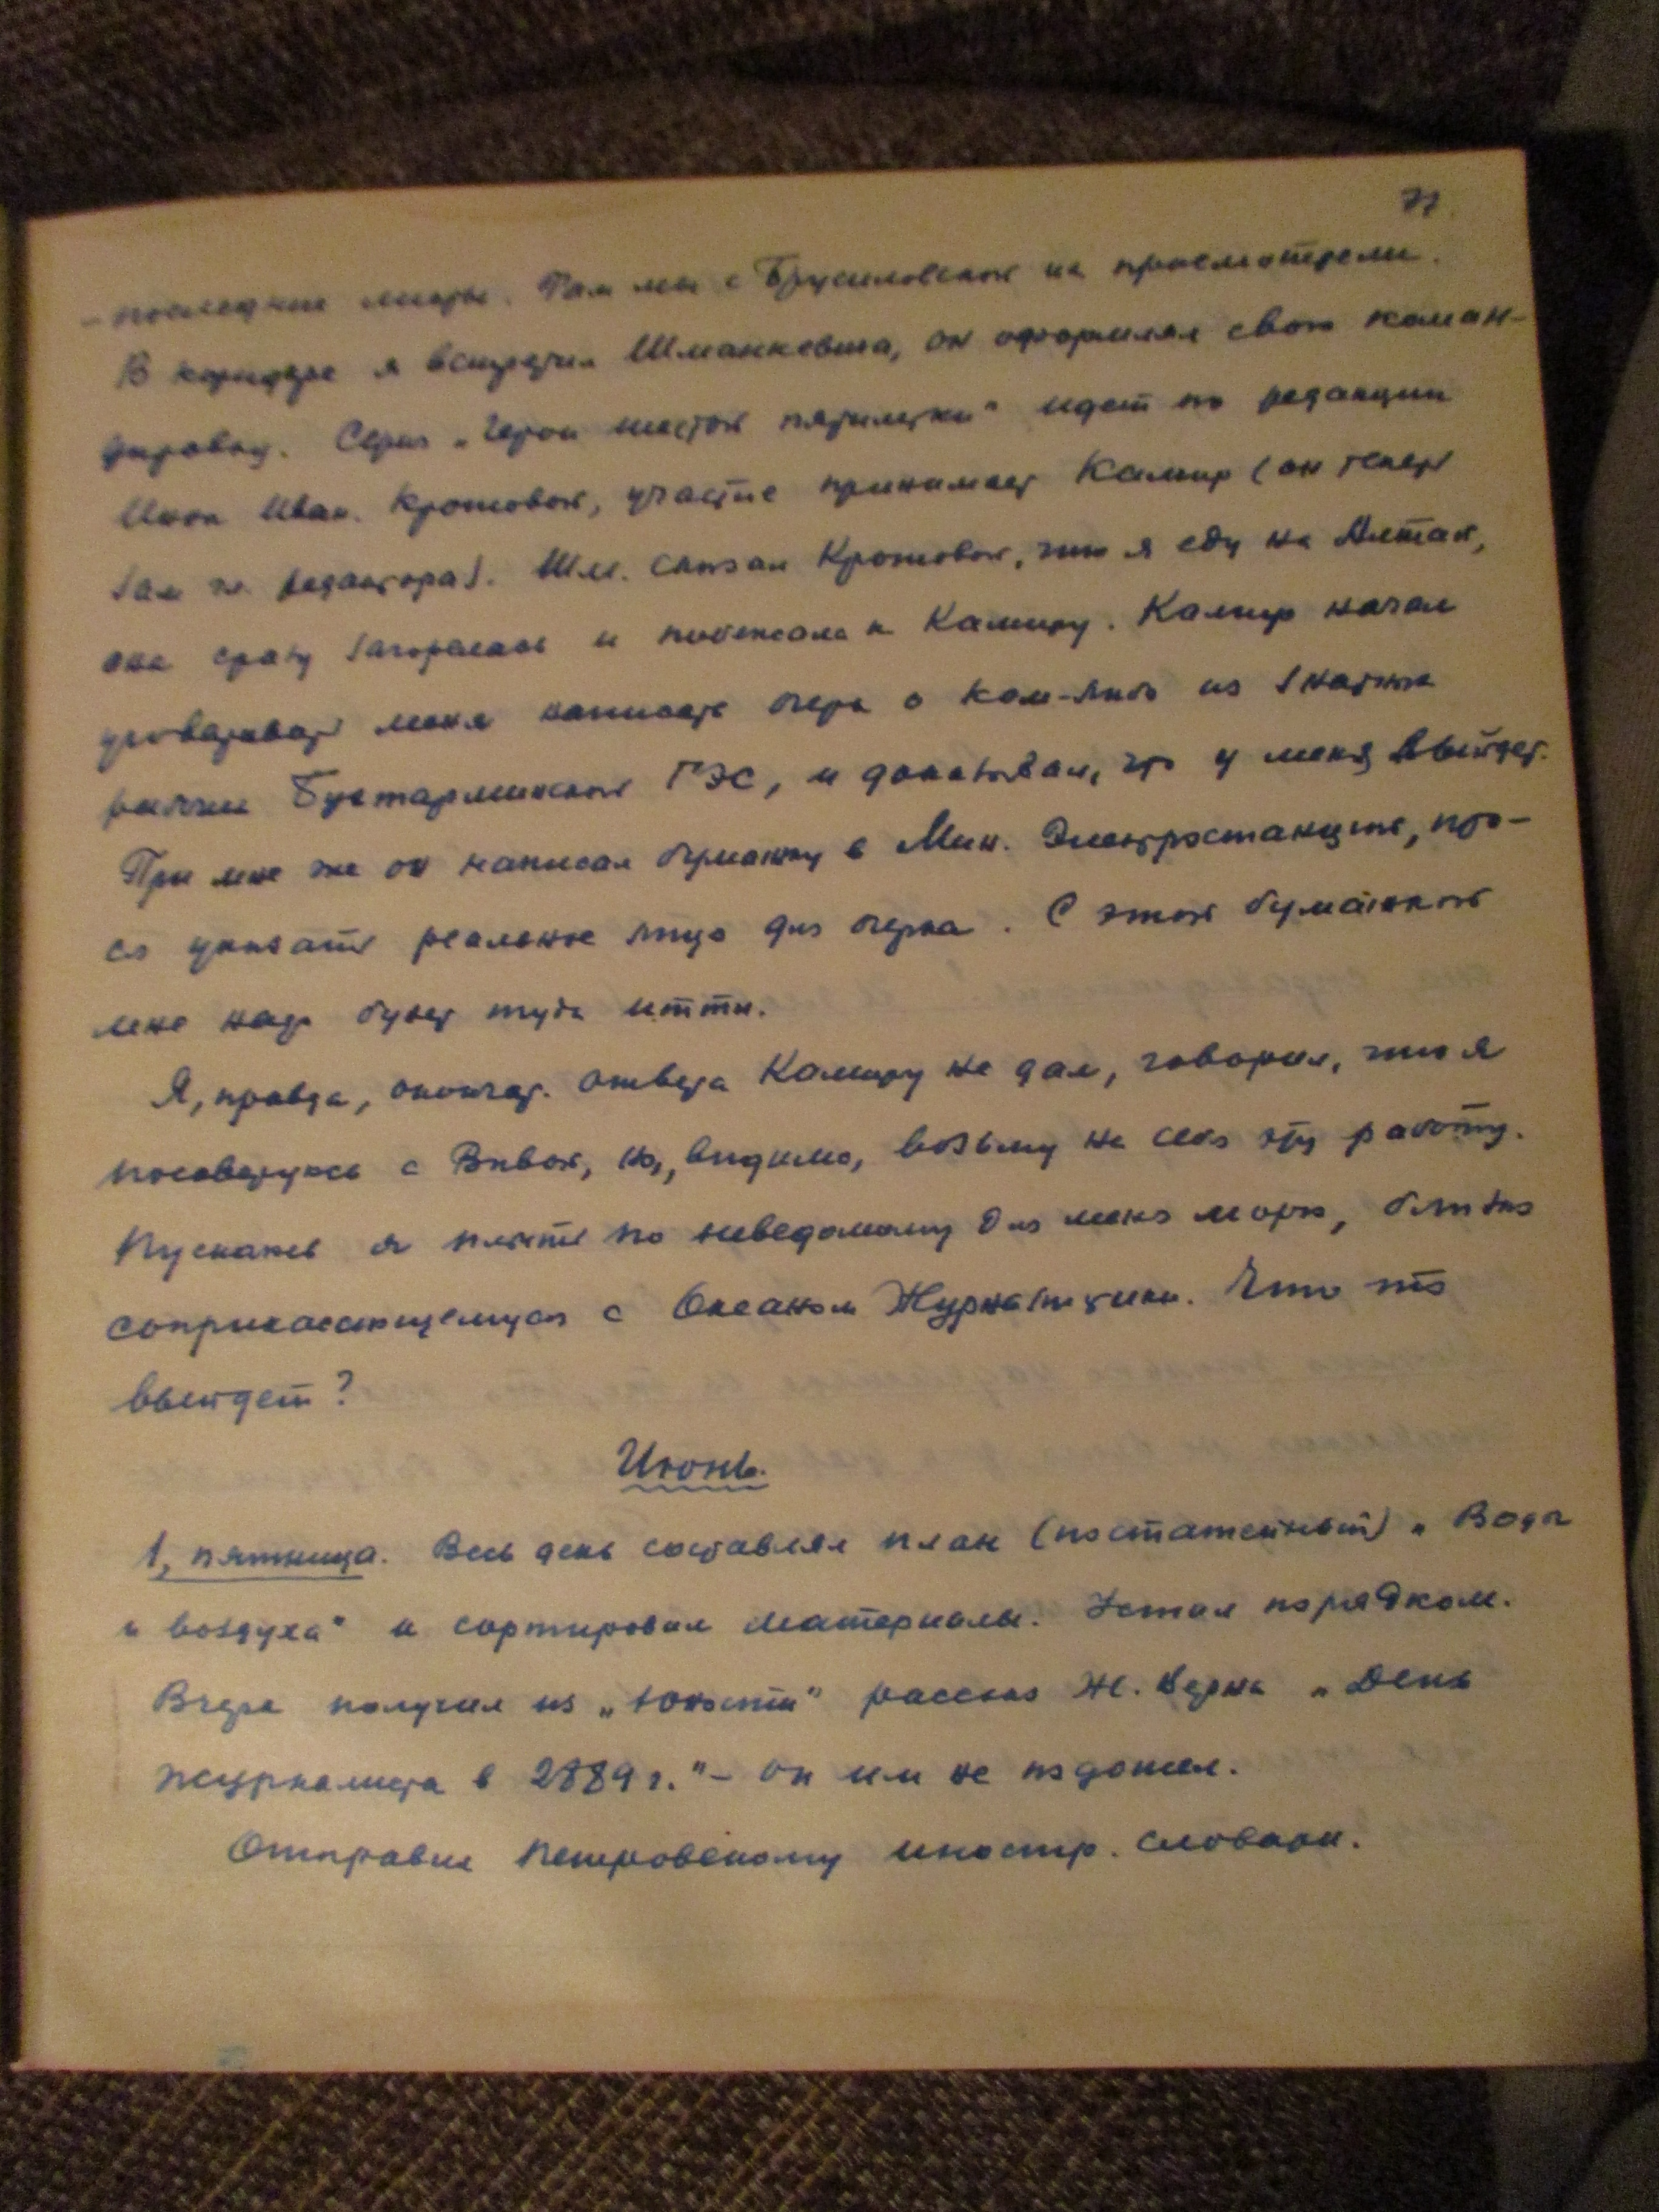 77
последние листы. Там мы с Брусиловской их просмотрели.
В коридоре я встретил Шманкевича, он оформлял свою коман-
дировку. Серия „Герои шестой пятилетки" идет по редакции
Инны Иван. Кротовой, участие принимает Камир (он теперь
зам гл. редактора). Шм. сказал Кротовой, что я еду на Алтай,
она сразу загорелась и побежала к Камиру. Камир начал
уговаривать меня написать очерк о ком-либо из знатных
рабочих Бухтарминской ГЭС, и доказывал, что у меня выйдет.
При мне же он написал бумажку в Мин. Электростанций, про-
ся указать реальное лицо для очерка. С этой бумажкой
мне надо будет туда итти.
Я, правда, окончат. ответа Камиру не дал, говорил, что я
посоветуюсь с Вивой, но, видимо, возьму на себя эту работу.
Пускаюсь я плыть по неведомому для меня морю, близко
соприкасающемуся с Океаном Журнализма. Что-то
выйдет?
Июнь.
1, пятница. Весь день составлял план (постатейный) „Воды
и воздуха" и сортировал материалы. Устал порядком.
Вчера получил из „Юности" рассказ Ж. Верна „День
журналиста в 2889 г." – он им не подошел.
Отправил Петровскому иностр. словари.